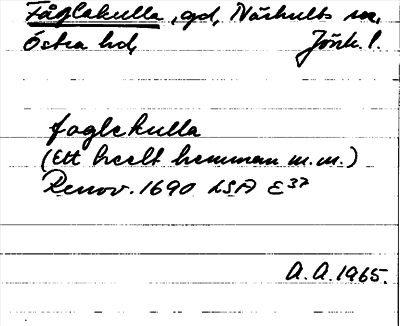 Fåglakulla, gd, Näshults sn,
Östra hd, Jönk. l.
foglekulla
(Ett heelt hemman m.m.)
Renov. 1690 LSA E³⁷
A. A. 1965.